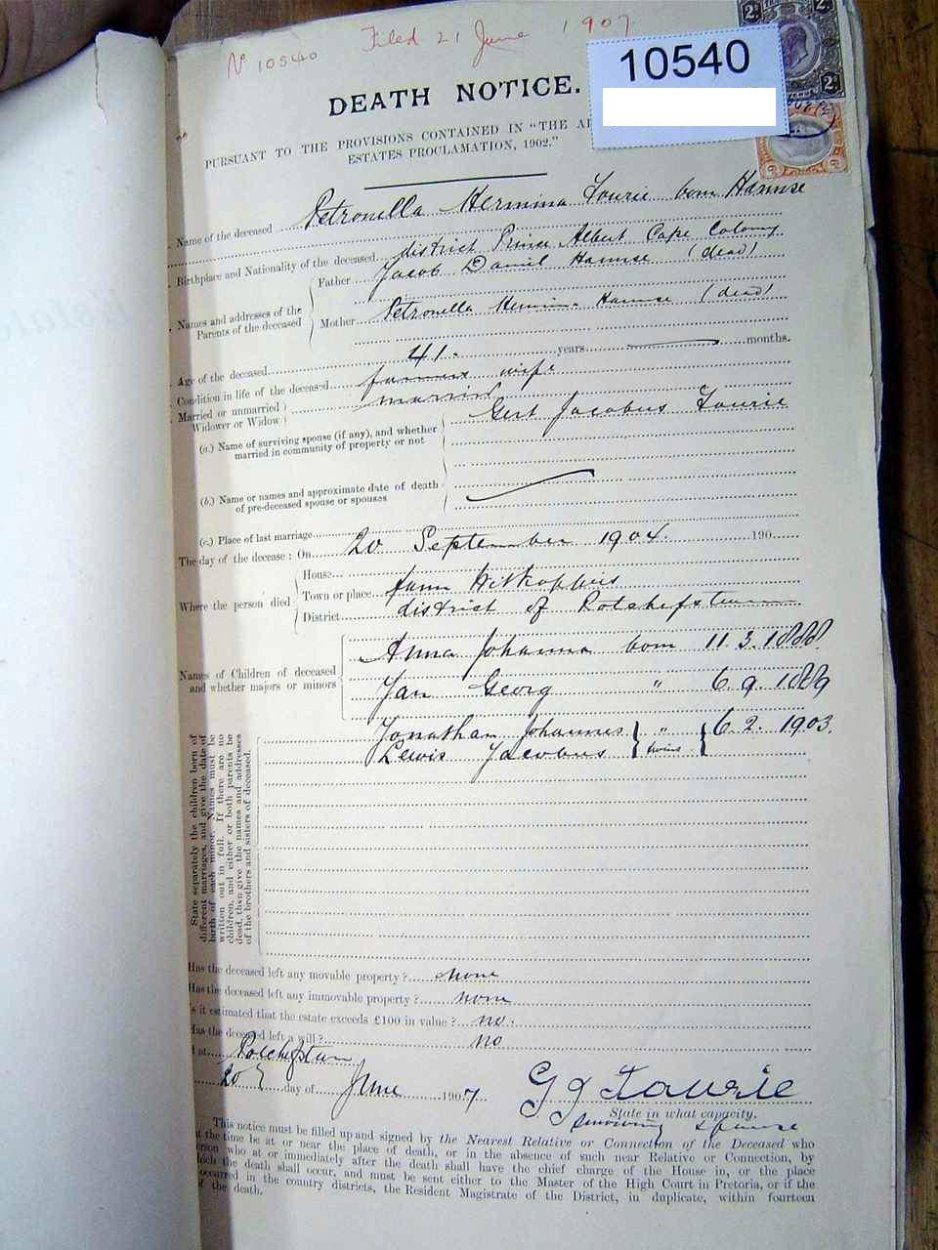 Nº 10540 Filed 21 June 1907
10540
DEATH NOTICE.
PURSUANT TO THE PROVISIONS CONTAINED IN "THE
ESTATES PROCLAMATION, 1902."
Name of the deceased Petronella Hermina Tourie born Hamse
Birthplace and Nationality of the deceased district Prince Albert Cape Colony
Names and addresses of the Parents of the deceased
Father Jacob Daniel Hamse (dead)
Mother Petronella Hermina Hamse (dead)
Age of the deceased 41. years — months.
Condition in life of the deceased farmers wife
Married or unmarried married
Widower or Widow
(a.) Name of surviving spouse (if any), and whether married in community of property or not Gert Jacobus Tourie
(b.) Name or names and approximate date of death of pre-deceased spouse or spouses
(c.) Place of last marriage
The day of the decease : On 20 September 1904. 190
Where the person died
House
Town or place farm Witkoppies
District district of Potchefstroom
Names of Children of deceased and whether majors or minors
Anna Johanna born 11.3.1888.
Jan Georg " 6.9.1889
Jonathan Johannes " 6.2.1903.
Lewis Jacobus twins
State separately the children born of
different marriages, and give the date of
birth of each minor. Names must be
written out in full. If there are no
children, and either or both parents be
dead, then give the names and addresses
of the brothers and sisters of deceased.
Has the deceased left any movable property ? none
Has the deceased left any immovable property ? none
is it estimated that the estate exceeds £100 in value ? no.
Has the deceased left a will ? no
at Potchefstrom
20 day of June 1907
G J Tourie
State in what capacity.
surviving spouse
This notice must be filled up and signed by the Nearest Relative or Connection of the Deceased who
at the time be at or near the place of death, or in the absence of such near Relative or Connection, by
person who at or immediately after the death shall have the chief charge of the House in, or the place
which the death shall occur, and must be sent either to the Master of the High Court in Pretoria, or if the
occurred in the country districts, the Resident Magistrate of the District, in duplicate, within fourteen
of the death.